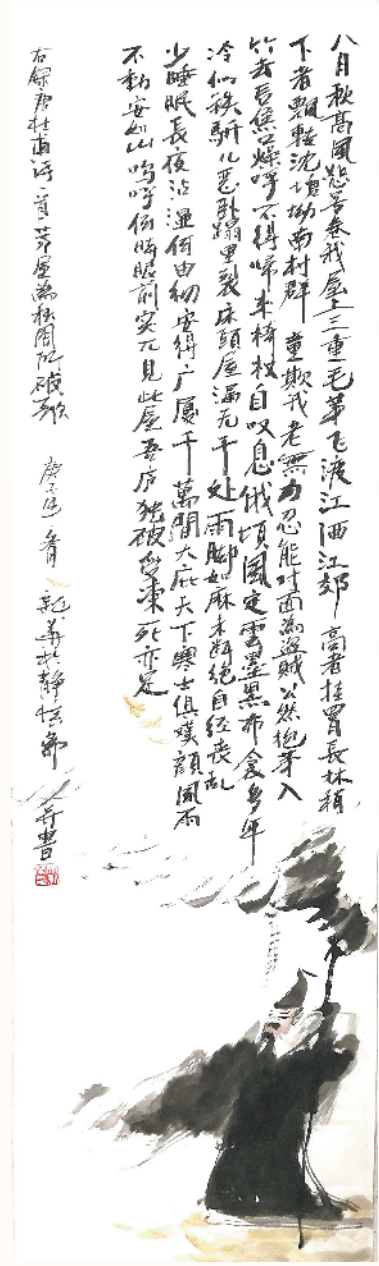 八月秋高風怒号卷我屋上三重毛茅飞渡江洒江郊高者挂罥長林梢
下者飄轉沈塘坳南村群童欺我老無力忍能对面為盗賊公然抱茅入
竹去唇焦口燥呼不得帰来椅杖自叹息俄頃風定雲墨黑布衾多年
冷似鉄骄儿恶卧蹋里裂床頭屋漏无干处雨脚如麻未断绝自经丧乱
少睡眠長夜沾濕何由彻安得广厦千萬間大庇天下寒士俱欢顔風雨
不動安如山嗚呼何時眼前突兀見此屋吾庐独破受凍死亦足
右録唐杜甫诗一首茅屋為秋風所破歌 庚子 於静 并書